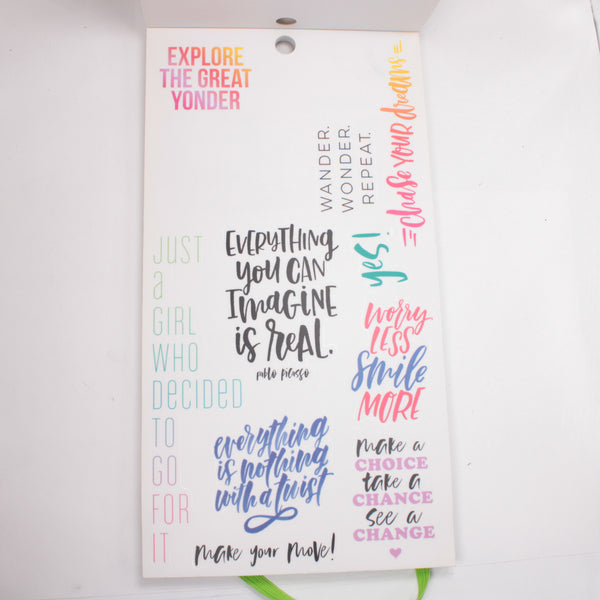 EXPLORE
THE GREAT
YONDER
chase YOUR dreams
WANDER.
WONDER.
REPEAT.
yes!
JUST
a
GIRL
WHO
DECIDED
TO
GO
FOR
IT
EVERYTHING
YOU CAN
IMAGINE
is REAL.
pablo picasso
worry
LESS
Smile
MORE
everything
is nothing
with a twist
make a
CHOICE
take a
CHANCE
see a
CHANGE
make your move!